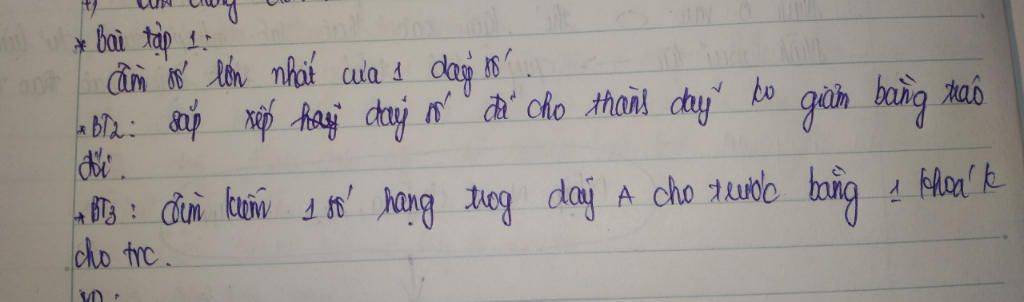 * Bài tập 1:
Tìm số lớn nhất của 1 dãy số.
* BT2: sắp xếp dãy số đã cho thành dãy ko giảm bằng tráo
đổi.
* BT3: Tìm kiếm 1 số hạng trog dãy A cho trước bằng 1 khoá k
cho trc.
VD: